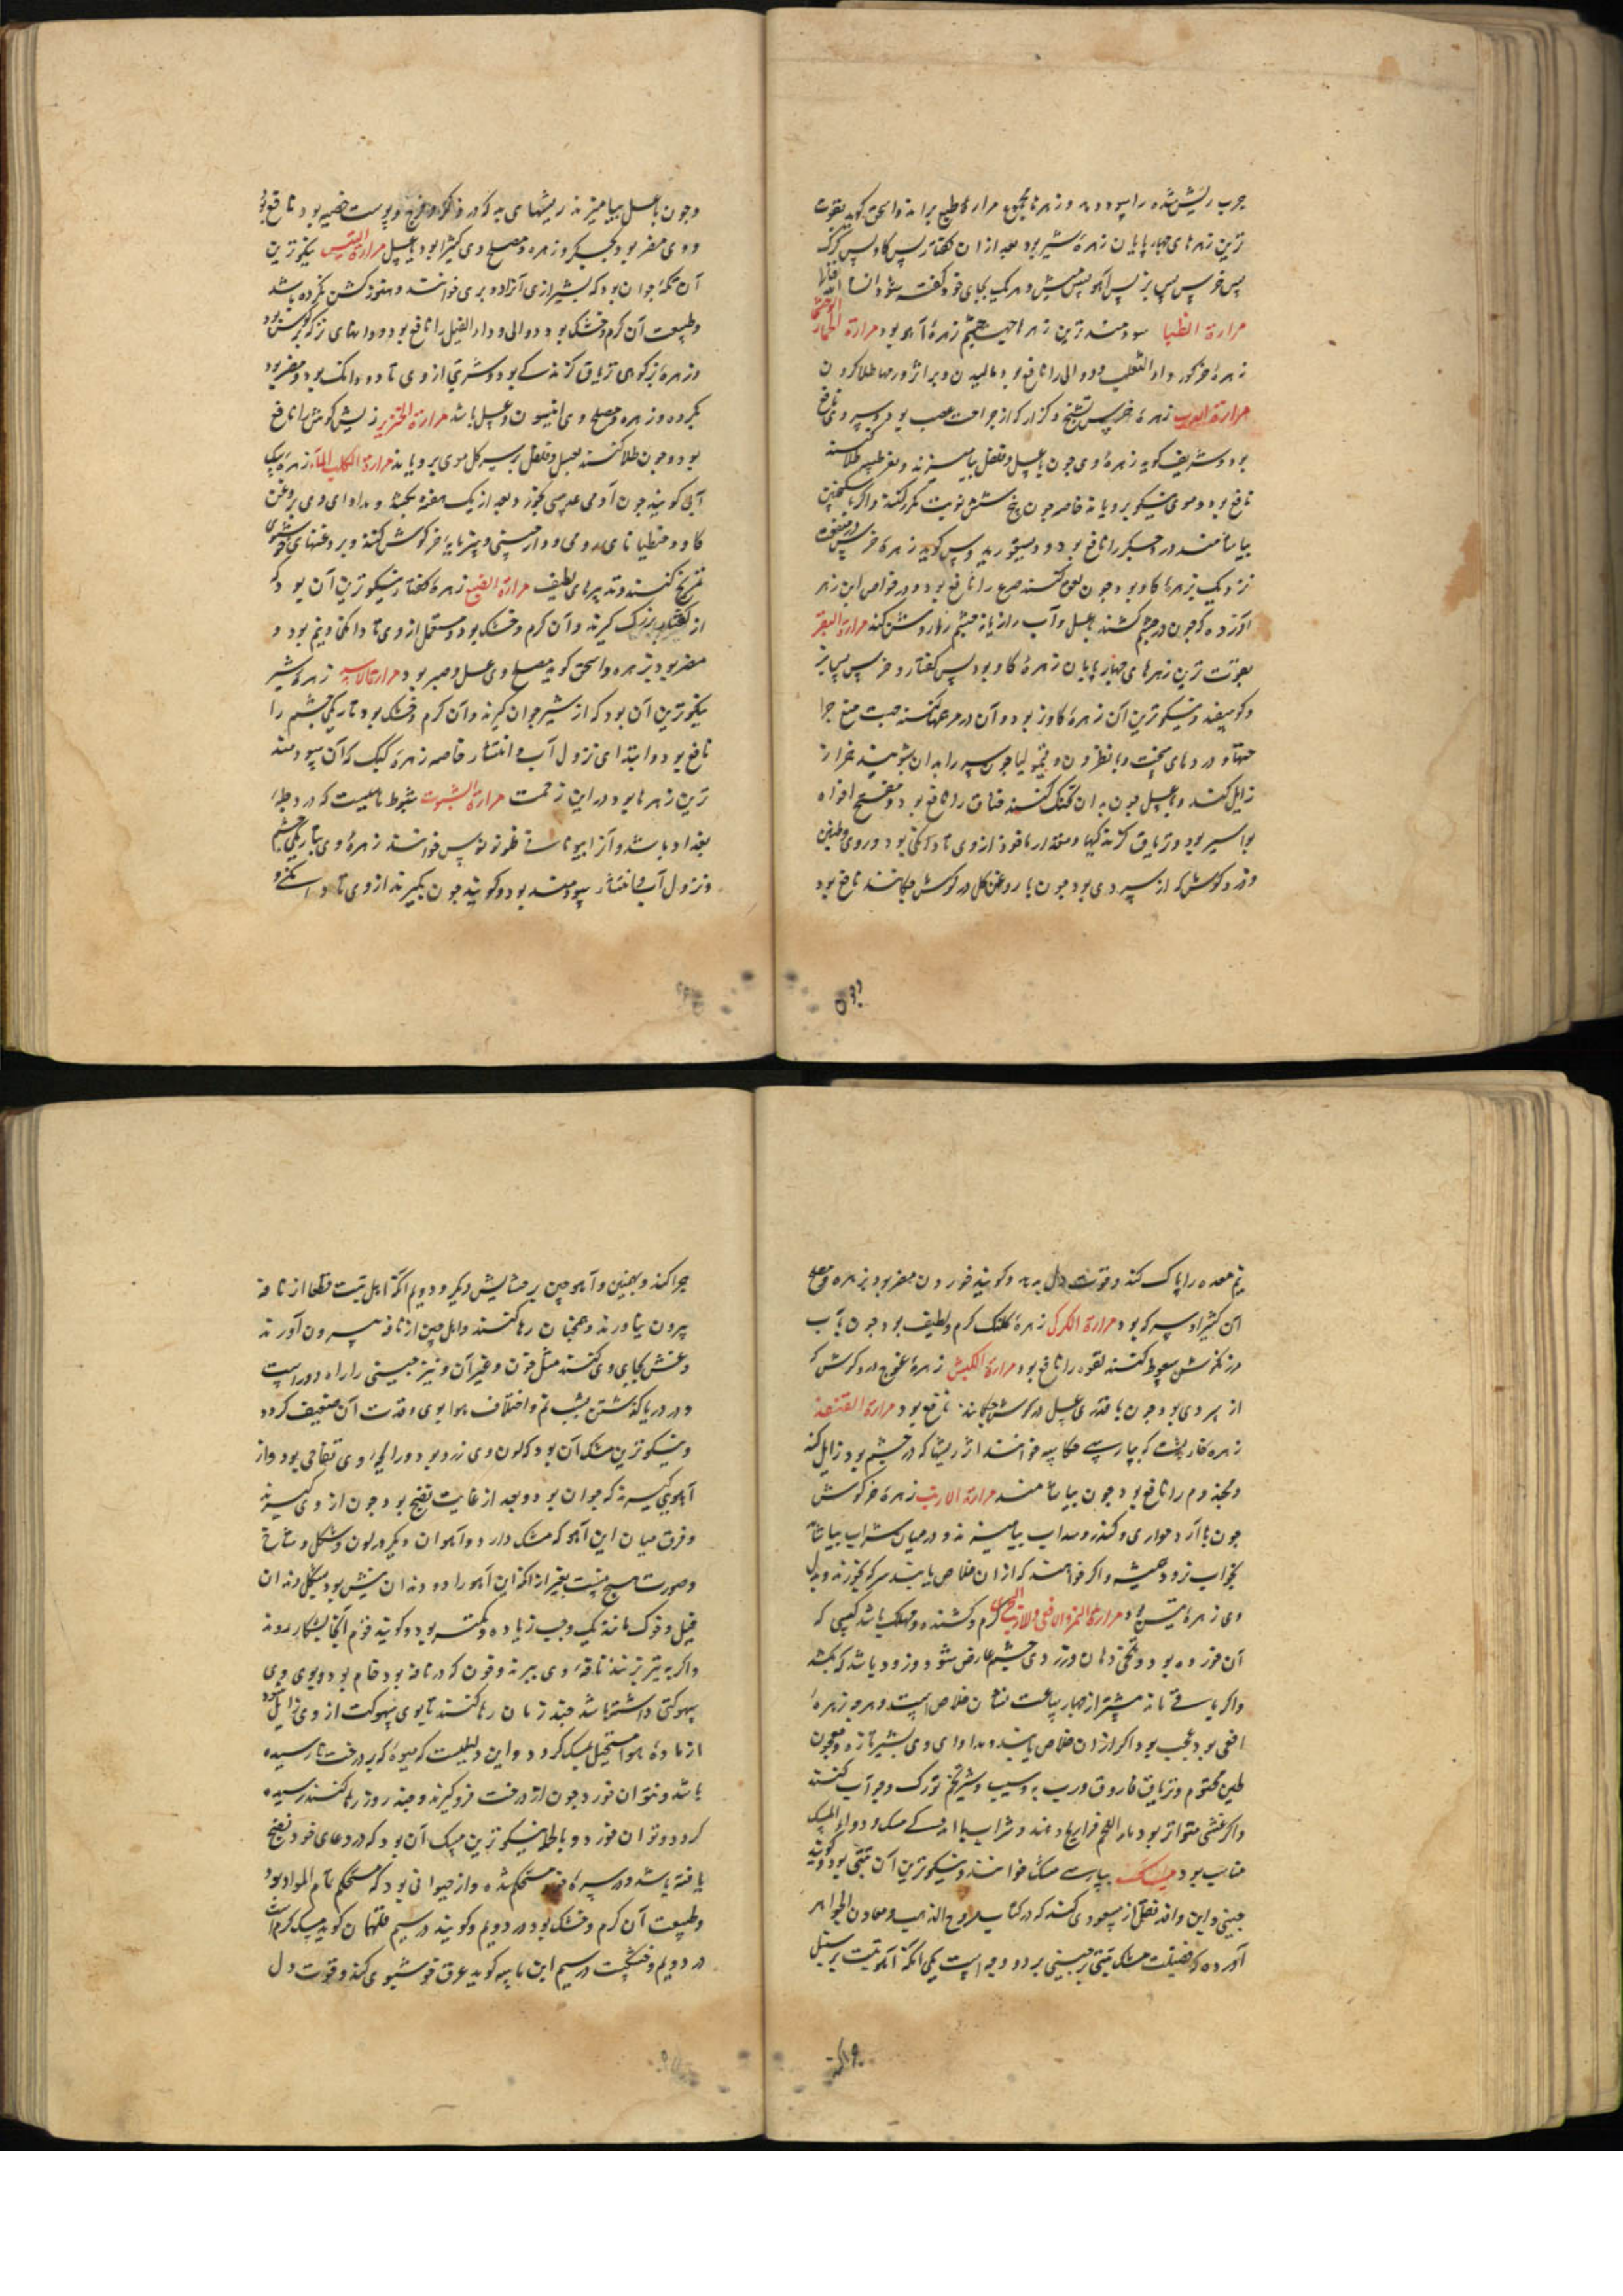 جرب ریش شده را سود دهد و زهرها مجموع مراره طیخ برانند واسحق گوید بقوت
ترین زهرهای چهارپایان زهرهٔ شیر بود بعد از ان کفتار پس کاو پس کرک
پس خرس پس بز پس آهو پس میش و هر یک بجای خود کفته شود انشاء الله
مرارة الظبا سودمندترین زهرها جهت چشم زهرهٔ آهو بود مرارة الحمار الوحشی
زهرهٔ خرکور داء الثعلب و دوالی را نافع بود مالیدن و بر اثر ورمها طلا کردن
مرارة الدب زهرهٔ خرس تشنج و کزاز که از جراحت عصب بود و سردی نافع
بود و شریف کوید زهرهٔ وی چون با عسل و فلفل بیامیزند و بر سر طلا کنند
نافع بود و موی نیکو برویاند خاصه چون پنج شش نوبت مکرر کنند و اکر با سکنجبین
بیاشامند درد جکر را نافع بود و دیسقوریدوس کوید زهرهٔ خرس در منفعت
نزدیک بزهرهٔ کاو بود چون لعوق کنند صرع را نافع بود و در خواص ابن زهر
آورده که چون در چشم کشند با عسل و آب رازیانه چشم را روشن کند مرارة البقر
بقوت ترین زهرهای چهارپایان زهرهٔ کاو بود پس کفتار و خرس پس بز
و کوسفند و نیکوترین آن زهرهٔ کاو نر بود و آن در مرهمها کنند جهت منع جرا
حتها و دردهای سخت و با نطرون و قیمولیا چون سر را بدان بشویند خزاز
زایل کند و با عسل چون بدان تحنک کنند خناق را نافع بود و مفتح افواه
بواسیر بود و تریاق کزندکیها و مقدار ماخوذ از وی تا دانکی بود و دوی و طنین
و درد کوش که از سردی بود چون با روغن کل در کوش چکانند نافع بود
و چون با عسل بیامیزند ریشهای بد که در ذکر و فرج و پوست خصیه بود نافع بود
و وی مضر بود بجکر و زهره و مصلح وی کثیرا بود یا عسل مرارة التیس نیکوترین
آن تکهٔ جوان بود که بشیرازی آزاد و بری خوانند و هنوز کشن نکرده باشد
و طبیعت آن کرم و خشک بود و دوالی و داء الفیل را نافع بود
و زهرهٔ بز کوهی تریاق کزندکی بود و شربتی از وی تا دو دانک بود و مضر بود
بکرده و زهره و مصلح وی انیسون و عسل باشد مرارة الخنزیر ریش کوش را نافع
بود و چون طلا کنند بعسل و فلفل بر سر کل موی برویاند مرارة الکلب الماء زهرهٔ سک
آبی کویند چون آدمی عدسی بخورد بعد از یک هفته بکشد و مداوای وی بروغن
کاو و جنطیانای رومی و دارچینی و پنیرمایهٔ خرکوش کنند و بروغنهای خوشبوی
تمریخ کنند و تدبیرهای لطیف مرارة الضبع زهرهٔ کفتار نیکوترین آن بود که
از کفتار بزرک کیرند و آن کرم و خشک بود و مستعمل از وی تا دانکی و نیم بود و
مضر بود بزهره و اسحق کوید مصلح وی عسل و صبر بود مرارة الاسد زهرهٔ شیر
نیکوترین آن بود که از شیر جوان کیرند و آن کرم و خشک بود تاریکی چشم را
نافع بود و ابتدای نزول آب و انتشار خاصه زهرهٔ کبک که آن سودمند
ترین زهرها بود در این زحمت مرارة الشبوط شبوط ماهییست که در دجلهٔ
بغداد باشد و آنرا خوانند زهرهٔ وی تاریکی چشم
و نزول آب و انتشار سودمند بود و کویند چون بکیرند از وی تا دانکی و
نیم معده را پاک کند و قوت دل بدهد و کویند خوردن مضر بود بزهره و مصلح
آن کثیرا و سرکه بود مرارة الکرکی زهرهٔ کلنک کرم و لطیف بود چون با آب
مرزنکوش سعوط کنند لقوه را نافع بود مرارة الکبش زهرهٔ غوچ درد کوش که
از سردی بود چون با قدری عسل در کوش چکانند نافع بود مرارة القنفذ
زهرهٔ خارپشت که بپارسی خوانند اثر ریشها که در چشم بود زایل کند
و مجذوم را نافع بود چون بیاشامند مرارة الارنب زهرهٔ خرکوش
چون با آرد حواری و کندر و سداب بیامیزند و در میان شراب بیاشامند
بخواب رود همیشه و اکر خواهند که از ان خلاص یابند سرکه بخورند و بدل
وی زهرهٔ تیس بود مرارة النمر و الافعی و الارنب البحری کرم و کشنده و مهلک باشد کسی که
آن خورده بود و تلخی دهان و زردی چشم عارض شود و زود باشد که بکشد
و اکر باقی ماند بیشتر از چهار ساعت نشان خلاص است و هر چه زهرهٔ
افعی بود عجب بود اکر از ان خلاص یابند و مداوای وی بشیر تازه و معجون
طین مختوم و تریاق فاروق و رب به و سیب و شیر تخم تورک و جو آب کنند
و اکر غشی متواتر بود ماء اللحم فراریج دهند و شراب با اندکی مسک و دواء المسک
مناسب بود مسک بپارسی مشک خوانند و نیکوترین آن تبتی بود و کویند
چینی و این وافد نقل از مسعودی کند که در کتاب مروج الذهب و معادن الجواهر
آورده که فضیلت مشک تبتی بر چینی بر دو وجه است یکی آنکه آهو تبت بر سنبل
چرا کند و بهمنین و آهو چین بر حشایش دیکر و دویم آنکه اهل تبت قطعا از نافه
بیرون نیاورند و همچنان رها کنند و اهل چین از نافه بیرون آورند
و غش بجای وی کنند مثل خون و غیر آن و نیز چینی را راه دور است
و در دریا کذشتن بسبب نم و اختلاف هوا بوی و قوت آن ضعیف کردد
و نیکوترین مشک آن بود که لون وی زرد بود و رایحهٔ وی تفاحی بود و از
آهویی کیرند که جوان بود و بعد از غایت نضج بود چون از وی کیرند
و فرق میان این آهو که مشک دارد و آهوان دیکر در لون و شکل و شاخ
و صورت هیچ نیست بغیر از آنکه این آهو را دو دندان نیش بود بشکل دندان
فیل و خوک مانند یک وجب زیاده و کمتر بود و کویند قوم آنجا بشکار روند
و اکر به تیر بزنند نافهٔ وی ببرند و خون که در نافه بود خام بود و بوی وی
سهوکتی داشته باشد چند زمان رها کنند تا بوی سهوکت از وی زایل شود
از مادهٔ هوا مستحیل بمسک کردد و این دلیلیست که میوه که بر درخت نارسیده
باشد و نتوان خورد چون از درخت فرو کیرند و چند روز رها کنند رسیده
کردد و توان خورد و بالجمله نیکوترین مسک آن بود که در وعای خود نضج
یافته باشد و در سرهٔ خود مستحکم شده و از حیوانی بود که مستحکم تمام المواد بود
و طبیعت آن کرم و خشک بود در دویم و کویند در سیم فلتهمان کوید مسک کرم است
در دویم و خشکست در سیم ابن ماسه کوید عرق خوشبوی کند و قوت دل